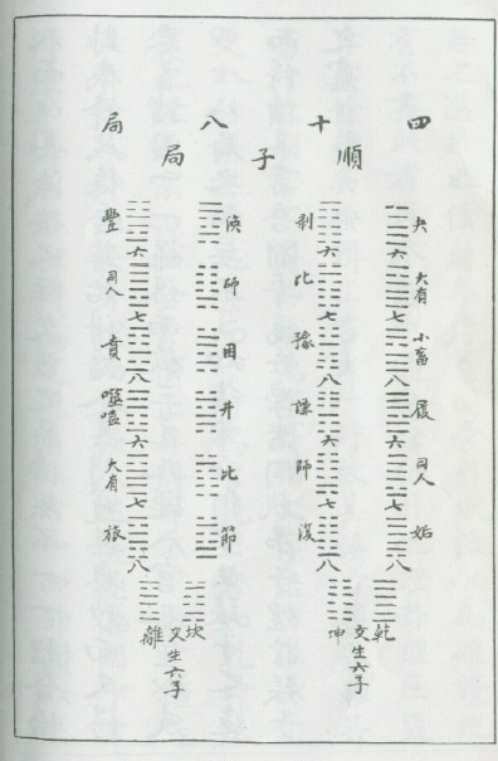 四十八局
順子局
夬
大有
小畜
履
同人
姤
六
七
八
六
七
八
剥
比
豫
謙
師
復
乾
交生六子
坤
渙
師
困
井
比
節
六
七
八
六
七
八
豐
同人
賁
噬嗑
大有
旅
坎
又生六子
離